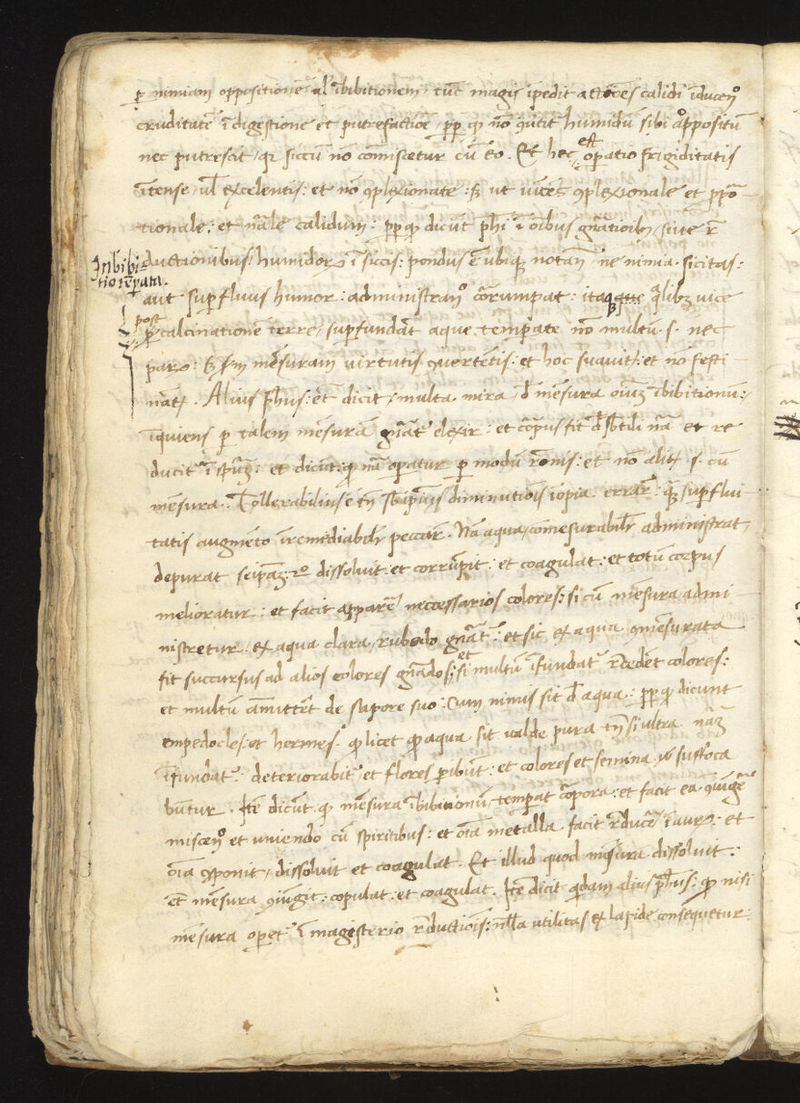 ꝑ nimiam oppositionē al' ībibitionem, tūc magis īpedit actōes calidi īducen°
cruditatē ī digestione et putrefactiōe, ꝓp̄ qd̄ nō ꝯūtit humidū sibi appositū
nec putrescit, qr̄ siccū nō comiscetur cū eo. Et hec est oꝑatio frigiditatis
ītense, vl' excelentis: et nō ꝯplexionate: sꝫ ut ꝯplexionale et ꝓpō
tionale: et nāle calidum: ꝓp̄ qd̄ dicūt phī ī oībus gnātioībꝫ, siue r̄
ductionibus: humidoꝝ ī siccis: pondus ē ubiqꝫ notan̄ ne nimia siccitas:
Inbibi
tio tēꝑata.
aut suꝑfluus humor: administran° cōrumpat: itaqꝫ q̄libꝫ uice
post
ꝑ calcinationē terre, suꝑfundāt aque temꝑate nō multū .s. nec
paꝝ: sꝫ scdm mēsuram uirtutis ꝯuertētis: et hoc suauit̄: et nō festi
nāt̄. Alius phus: et dicit, multa mira, d̄ mēsura oīuꝫ ībibitionū:
īquiens ꝑ talem mēsurā gn̄at' elexir: et cōrpus fit d̄ sbtili nā et re
ducit' ī spūꝫ: et dicūt: qd̄ nā oꝑatur ꝑ modū rōnis: et nō alit̄ .s. cū
mēsura. Tollerabilius ē tn̄ diminutiōis īopia errar̄: q̄ꝫ suꝑflui
tatis augmēto īremediabilr̄ peccar̄. Nā aqua, comēsurabilr̄ administrat,
depurat seipāꝫ: dissoluit: et corrūpit: et coagulat: et totū corpus
melioratur: et facit apparē neccessarios colores: si cū mēsura admi
nistretur. ex aqua clara, rubedo gnāt': et sic ex aqua ꝯmēsurata
fit succursus ad alios colores gnādos: et si multū īfundat' r̄cedēt colores:
et multū amittēt de sapore suo: Cum nimis sit d̄ aqua: ꝓp̄ qd̄ dicunt
empedocles: et hermes. qd̄ licet aqua sit ualde pura tn̄ si ultra nāꝫ
īfundat': deteriorabit' et flores ꝑibūt: et colores et semina suffoca
buntur. Itē dicūt qd̄ mēsura ībibitionū, temꝑat cōrpora: et facit ea ꝯiūgē
miscen° et uniendo cū spiritibus: et oīa metalla facit r̄ducē ī auꝝ: et
oīa ꝯponit, dissoluit et coagulat. Et illud quod mēsura dissoluit:
cū mēsura ꝯiūgit: copulat: et coagulat. Itē dicit qdam alius phus: qd̄ nisi
mēsura oꝑet' ī magisterio r̄ductiōis: nlla utilitas ex lapide consequetur.